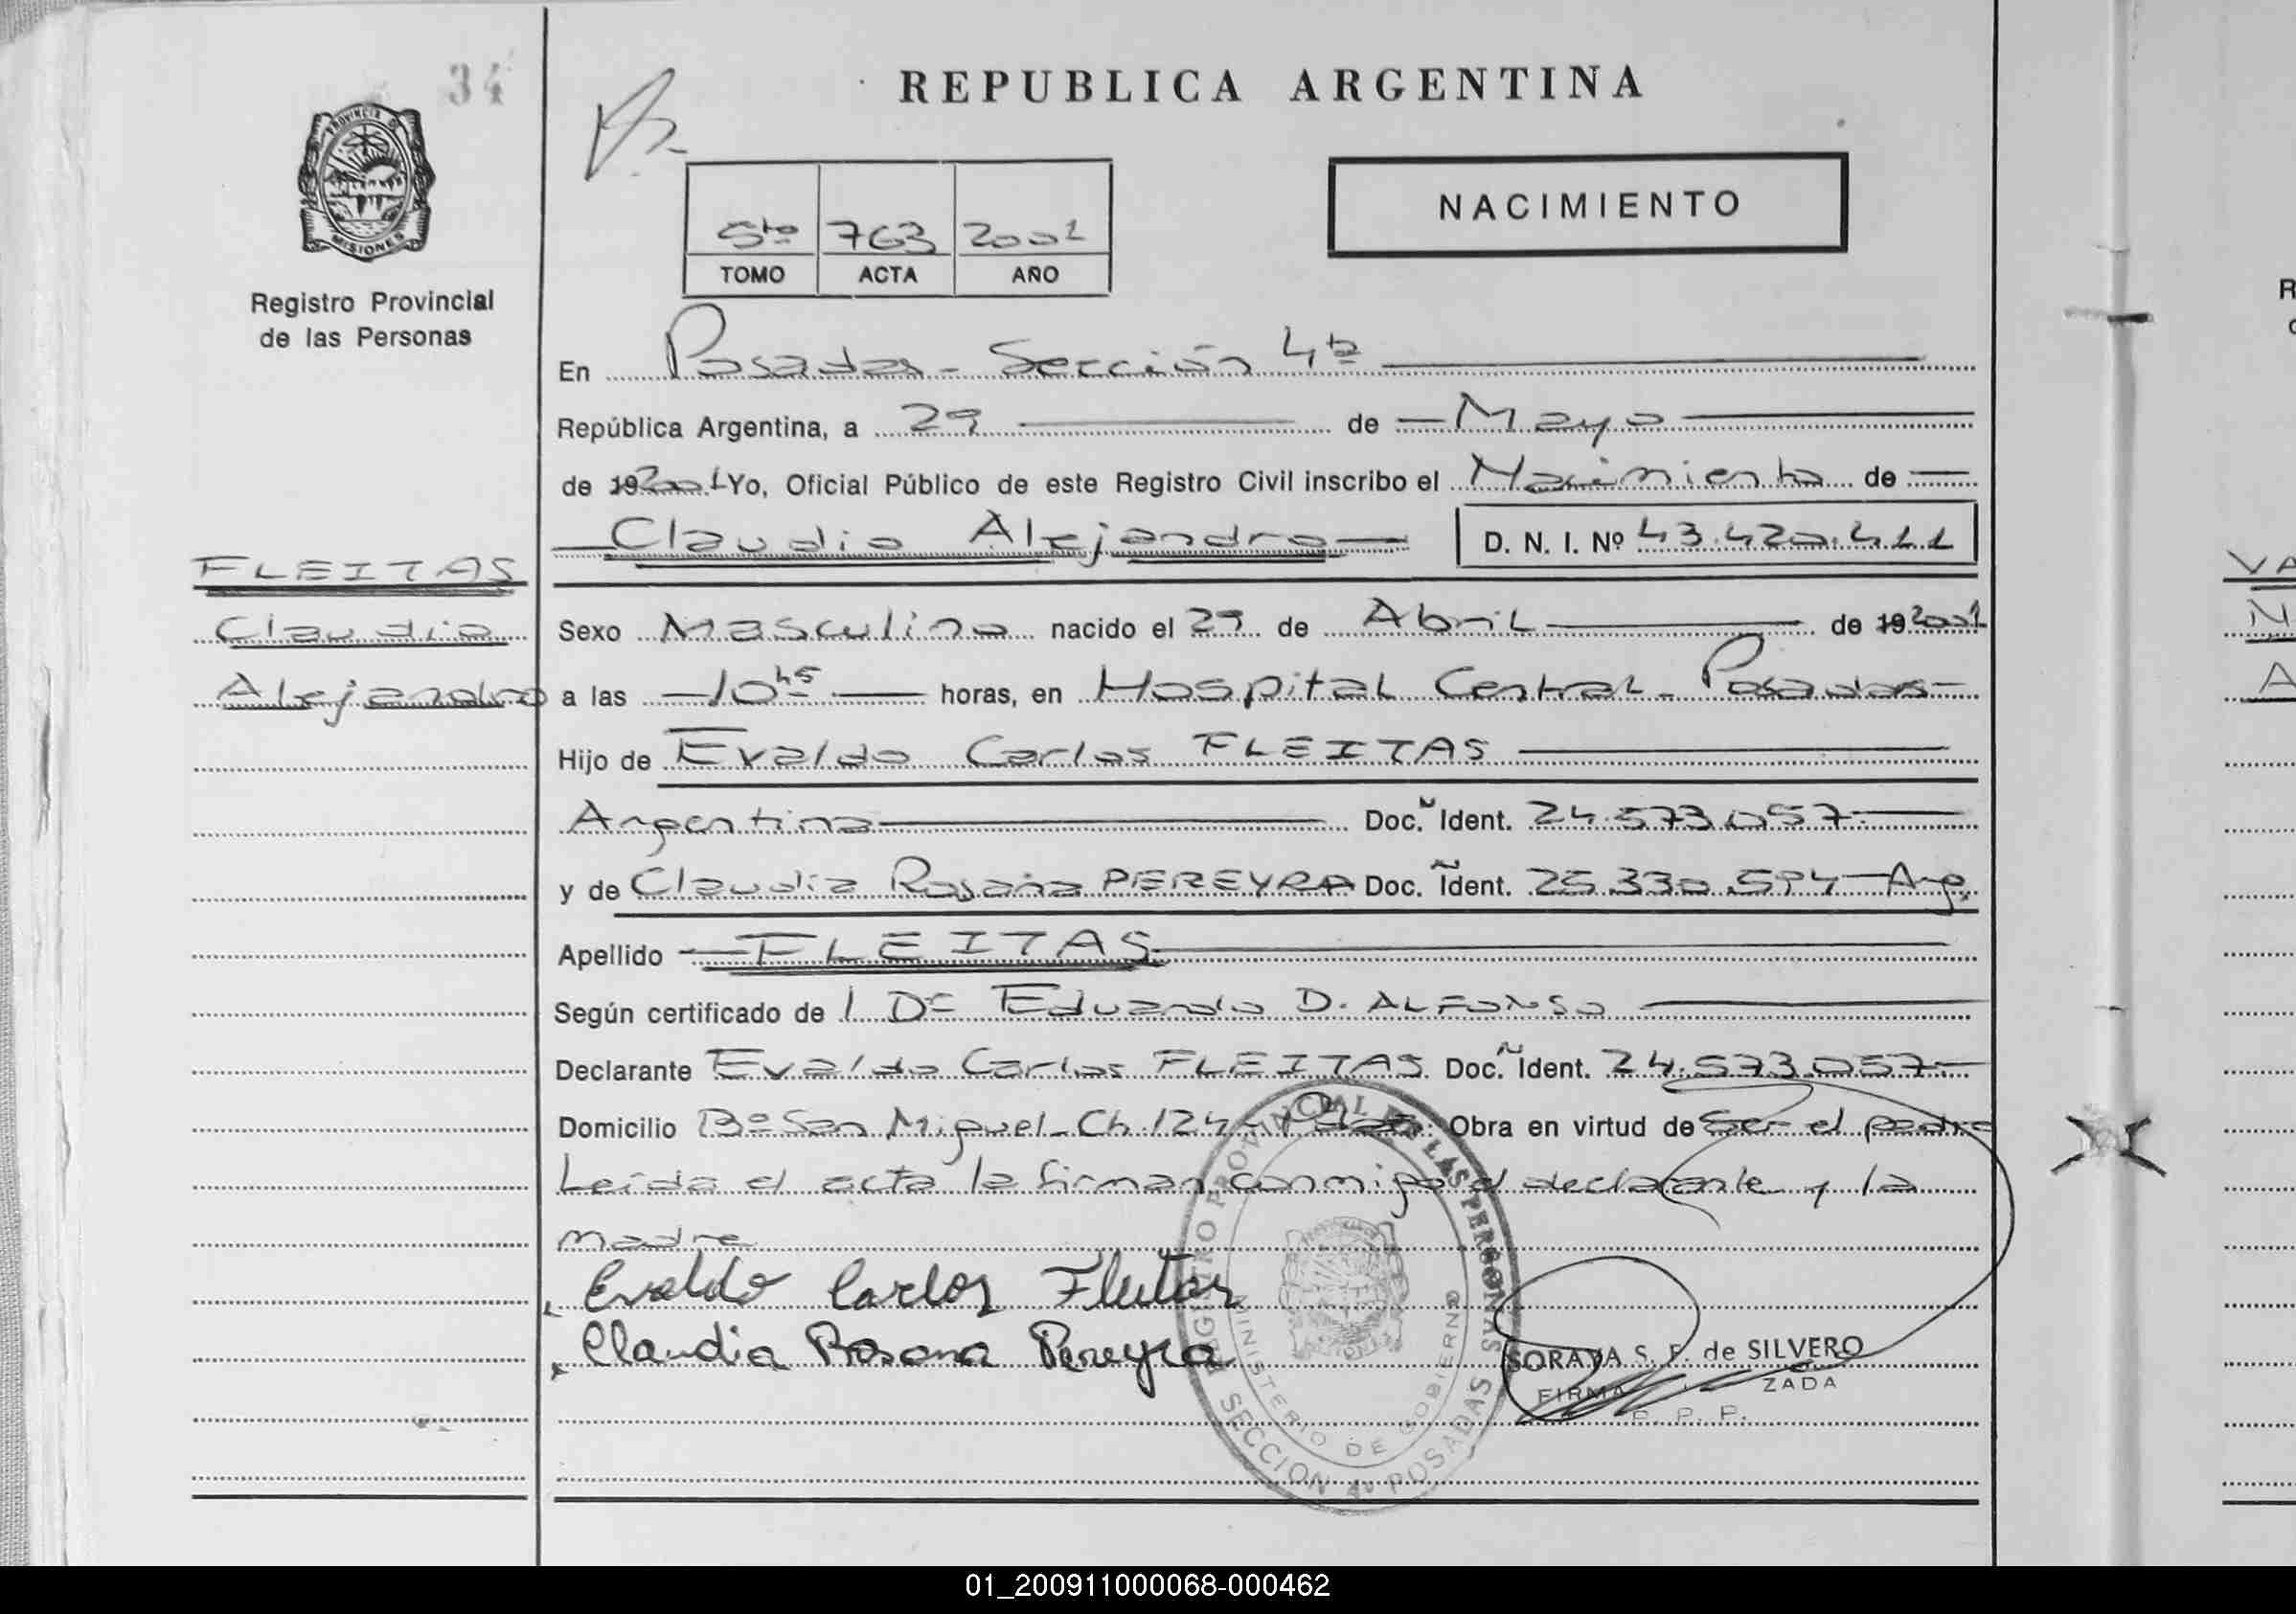 34
REPUBLICA ARGENTINA
PROVINCIA DE
MISIONES
Registro Provincial
de las Personas
5to 763 2001
TOMO ACTA AÑO
NACIMIENTO
En Posadas - Sección 4ta
República Argentina, a 29 de Mayo
de 19 2001 Yo, Oficial Público de este Registro Civil inscribo el Nacimiento de
Claudio Alejandro D. N. I. Nº 43.420.411
FLEITAS
Claudio
Alejandro
Sexo Masculino nacido el 29 de Abril de 19 2001
a las 10 45 horas, en Hospital Central - Posadas -
Hijo de Evaldo Carlos FLEITAS
Argentino Doc. Ident. 24.573.057.-
y de Claudia Rosana PEREYRA Doc. Ident. 25.330.594 - Arg.
Apellido FLEITAS
Según certificado de l Dr Eduardo D. ALFONSO
Declarante Evaldo Carlos FLEITAS Doc. Ident. 24.573.057.-
Domicilio Bº San Miguel - Ch. 124 - Pdas. Obra en virtud de Ser el padre
Leída el acta la firman conmigo el declarante y la
madre
Evaldo Carlos Fleitas
Claudia Rosana Pereyra
REGISTRO PROVINCIAL DE LAS PERSONAS
MINISTERIO DE GOBIERNO
SECCION 4a POSADAS
SORAYA S. F. de SILVERO
FIRMA ZADA
R. P. P.
01_200911000068-000462